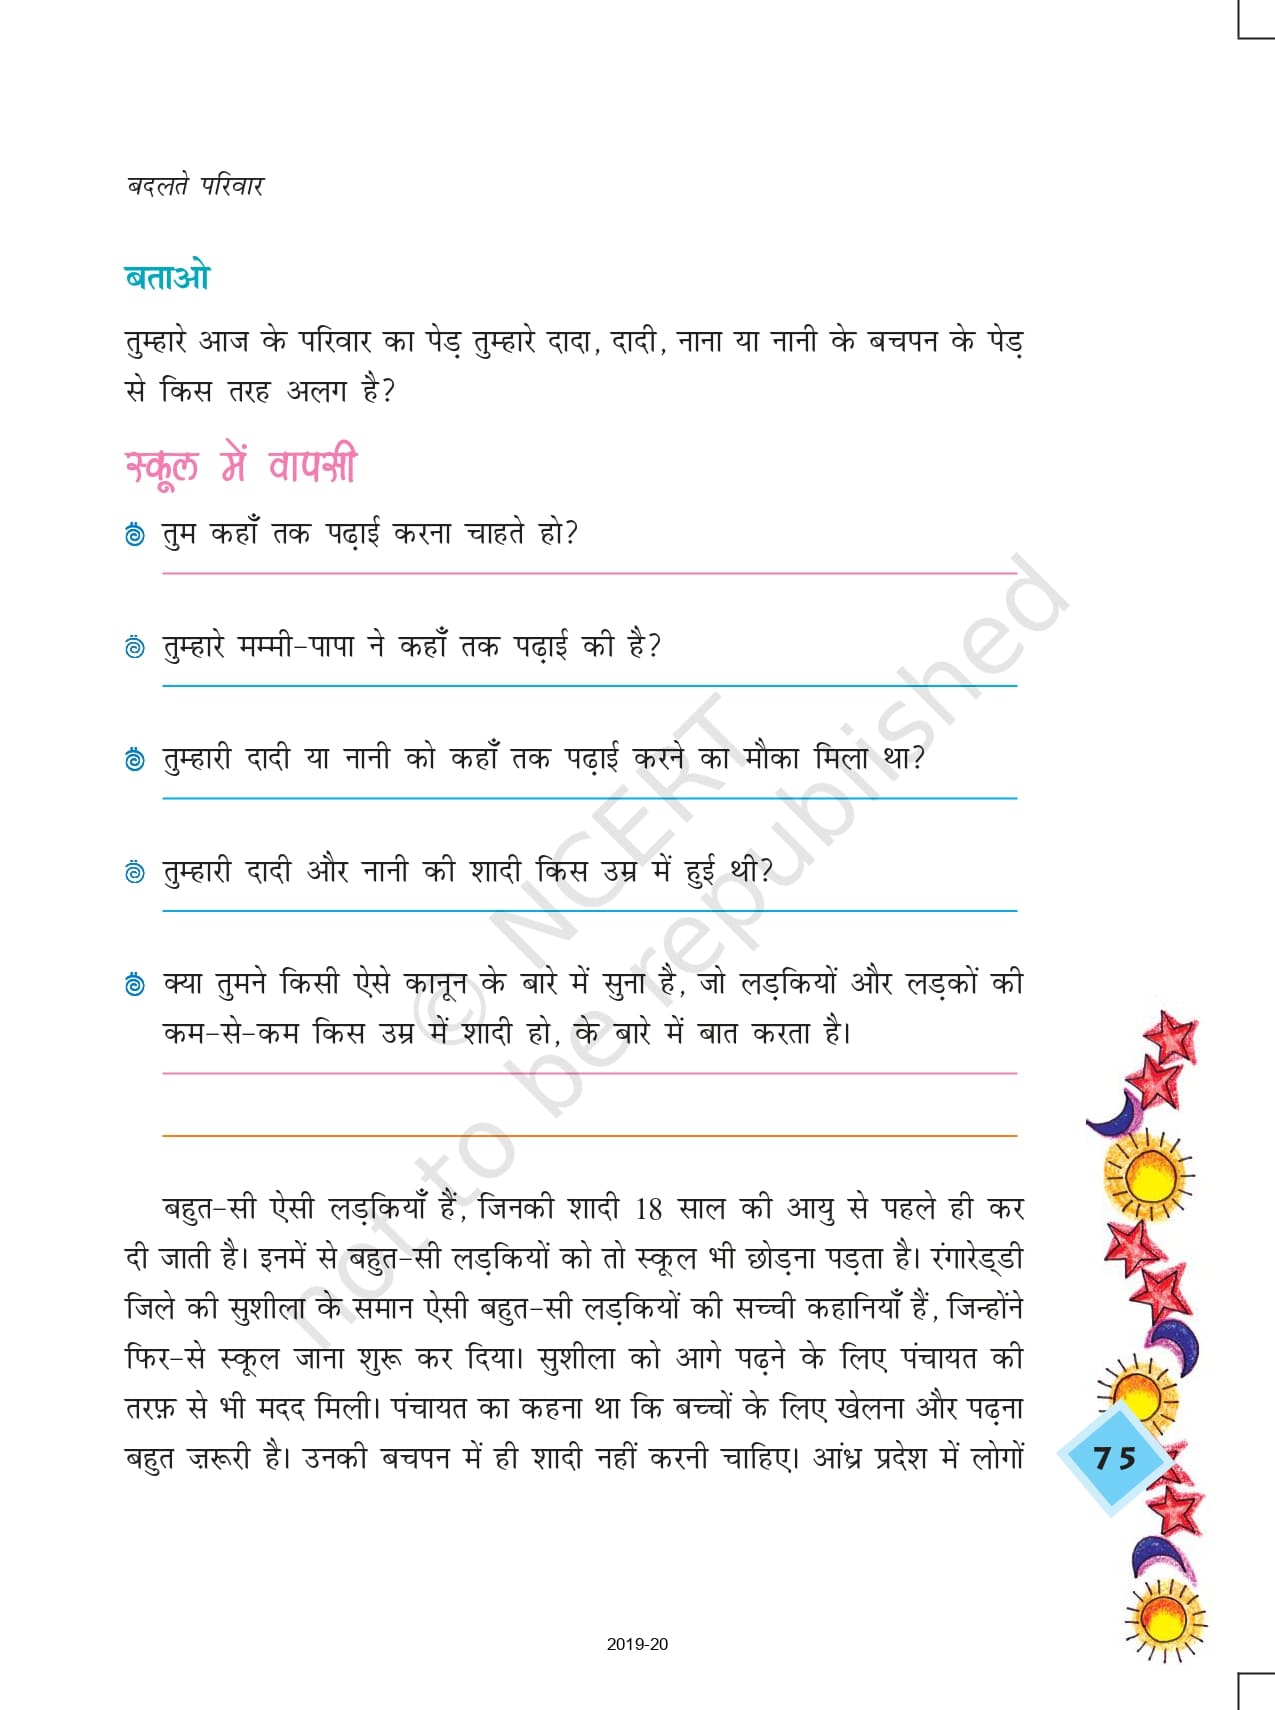 बदलते परिवार
बताओ
तुम्हारे आज के परिवार का पेड़ तुम्हारे दादा, दादी, नाना या नानी के बचपन के पेड़
से किस तरह अलग है?
स्कूल में वापसी
तुम कहाँ तक पढ़ाई करना चाहते हो?
तुम्हारे मम्मी-पापा ने कहाँ तक पढ़ाई की है?
तुम्हारी दादी या नानी को कहाँ तक पढ़ाई करने का मौका मिला था?
तुम्हारी दादी और नानी की शादी किस उम्र में हुई थी?
क्या तुमने किसी ऐसे कानून के बारे में सुना है, जो लड़कियों और लड़कों की
कम-से-कम किस उम्र में शादी हो, के बारे में बात करता है।
बहुत-सी ऐसी लड़कियाँ हैं, जिनकी शादी 18 साल की आयु से पहले ही कर
दी जाती है। इनमें से बहुत-सी लड़कियों को तो स्कूल भी छोड़ना पड़ता है। रंगारेड्डी
जिले की सुशीला के समान ऐसी बहुत-सी लड़कियों की सच्ची कहानियाँ हैं, जिन्होंने
फिर-से स्कूल जाना शुरू कर दिया। सुशीला को आगे पढ़ने के लिए पंचायत की
तरफ़ से भी मदद मिली। पंचायत का कहना था कि बच्चों के लिए खेलना और पढ़ना
बहुत ज़रूरी है। उनकी बचपन में ही शादी नहीं करनी चाहिए। आंध्र प्रदेश में लोगों
75
2019-20
© NCERT
not to be republished